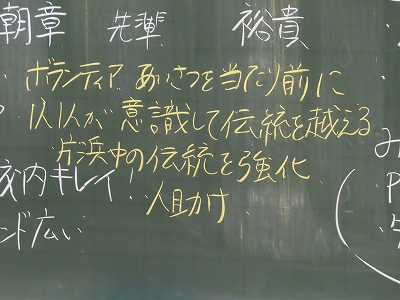 朝章 先輩 裕貴
ボランティア、あいさつを当たり前に
1人1人が意識して伝統を越える
浜中の伝統を強化
校内キレイ!
人助け
ンド広い